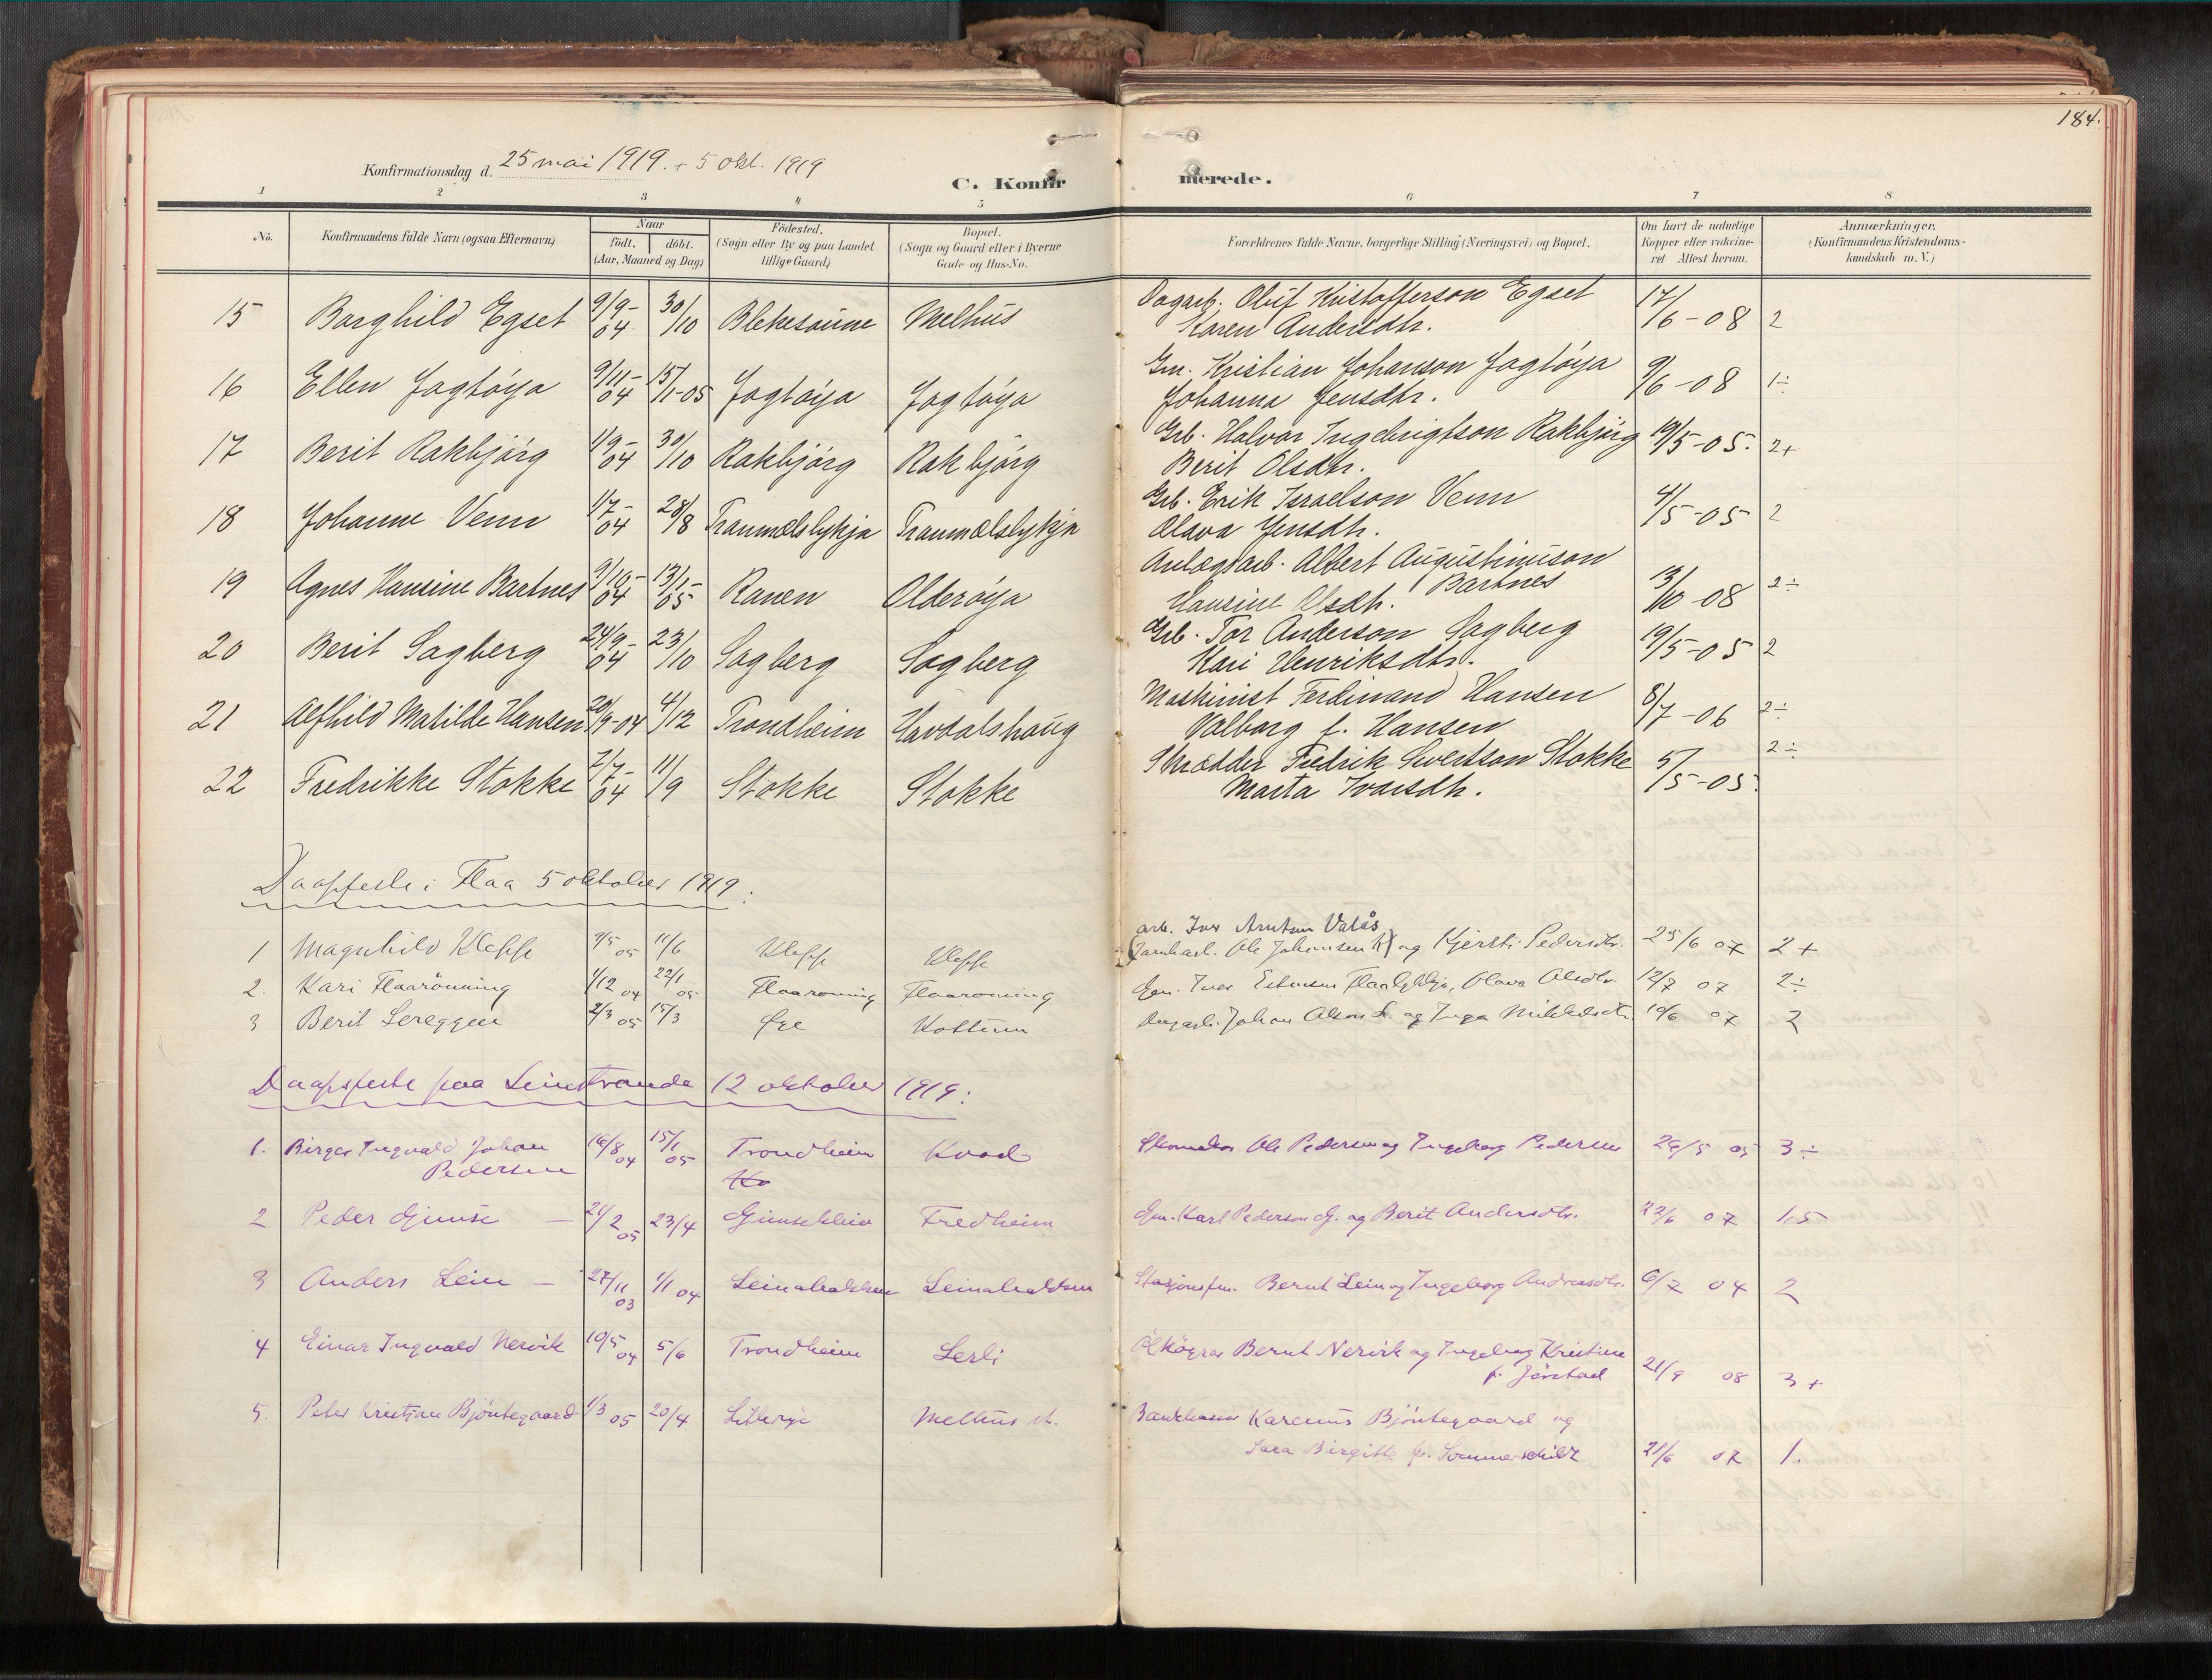 184.
Konfirmationsdag d. 25 mai 1919. + 5 okt. 1919
C. Konfirmerede.
1 2 3 4 5 6 7 8
No. Konfirmandens fulde Navn (ogsaa Efternavn) Naar Födested. Bopæl. Forældrenes fulde Navne, borgerlige Stilling (Næringsvei) og Bopæl. Om havt de naturlige Anmærkninger.
födt. döbt. (Sogn eller By og paa Landet (Sogn og Gaard eller i Byerne Kopper eller vakcine- (Konfirmandens Kristendoms-
(Aar, Maaned og Dag) tillige Gaard) Gade og Hus-No. ret Attest herom. kundskab m. V.)
15 Borghild Egset 9/9-04 30/10 Blekesaune Melhus Dagarb. Oluf Kristofferson Egset 17/6-08 2
Karen Andersdtr.
16 Ellen Jagtöya 9/11-04 15/1-05 Jagtöya Jagtöya Gm. Kristian Johanson Jagtöya 9/6-08 1÷
Johanna Jensdtr.
17 Berit Rakbjörg 1/9-04 30/10 Rakbjörg Rakbjörg Grb. Halvor Ingebrigtson Rakbjörg 19/5-05. 2+
Berit Olsdtr.
18 Johanne Venn 1/7-04 28/8 Tranmælslykja Tranmælslykja Grb. Erik Israelson Venn 4/5-05 2
Olava Jensdtr.
19 Agnes Hansine Bartnes 9/10-04 13/1-05 Ranen Olderöya Anlægsarb. Albert Augustinuson
Bartnes 13/10-08 2÷
Hansine Olsdtr.
20 Berit Sagberg 24/9-04 23/10 Sagberg Sagberg Grb. Tor Anderson Sagberg 19/5-05 2
Kari Henriksdtr.
21 Alfhild Matilde Hansen 20/9-04 4/12 Trondheim Havdalshaug Maskinist Ferdinand Hansen 8/7-06 2÷
Valborg f. Hansen
22 Fredrikke Stokke 7/7-04 11/9 Stokke Stokke Skrædder Fredrik Sivertson Stokke 5/5-05. 2÷
Marta Ivarsdtr.
Daapsfeste i Flaa 5 oktober 1919:
arb. Iver Arntsen Valås
1 Magnhild Kleppe 11/6 Klepp Klepp Ole Johansen K) og Kjersti Pedersdtr. 25/6 07 2+
2. Kari Flaarönning 1/12 04 22/1 05 Flaaronning Flaaronning Gm. Iver Estensen Flaalykkja, Olava Olsdtr. 12/7 07 2÷
3 Berit Sereggen 2/3 05 15/3 Øye Kottum Johan Olson S. og Inga Mikkelsdtr. 10/6 07 2
Daapsfeste paa Leinstranda 12 oktober 1919:
1. Birger Ingvald Johan 16/8 04 15/1 05 Trondheim Kvad Skomaker Ole Pedersen og Ingeborg Pedersen 3÷
Pedersen
2 Peder Gimse 21/2 05 23/4 Gimsekleiv Fredheim Gm. Karl Pederson G. og Berit Andersdtr. 22/6 07 1,5
3 Anders Lein 27/11 03 1/1 04 Leinabakken Leinabakken Stasjonsfm. Bernt Lein og Ingeborg Andreasdtr. 6/7 04 2
4 Einar Ingvald Nervik 10/5 04 5/6 Trondheim Lerli Ölkögrer Bernt Nervik og Ingeborg Kristine
f. Jörstad 21/9 08 3+
5. Peter Kristian Bjöntegaard 1/3 05 20/4 Melhus st. Karenus Bjöntegaard og
Sara Birgitte f. Sommerschild 21/6 07 1.